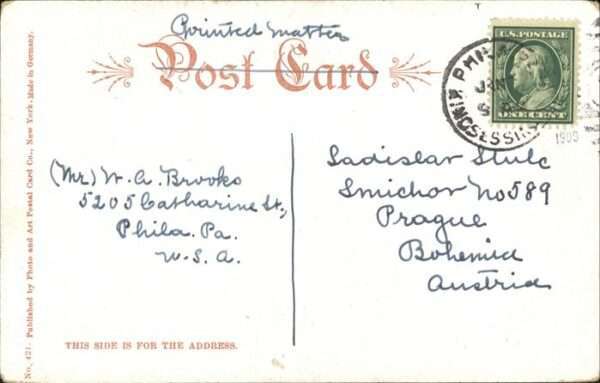 Printed matter
Post Card
U.S. POSTAGE
ONE CENT
KINGSESSING
1909
(Mr) W. A. Brooks
5205 Catharine St.,
Phila. Pa.
U. S. A.
Ladislav Stulc
Smichov No 589
Prague
Bohemia
Austria
THIS SIDE IS FOR THE ADDRESS.
No. 421. Published by Photo and Art Postal Card Co., New York. Made in Germany.